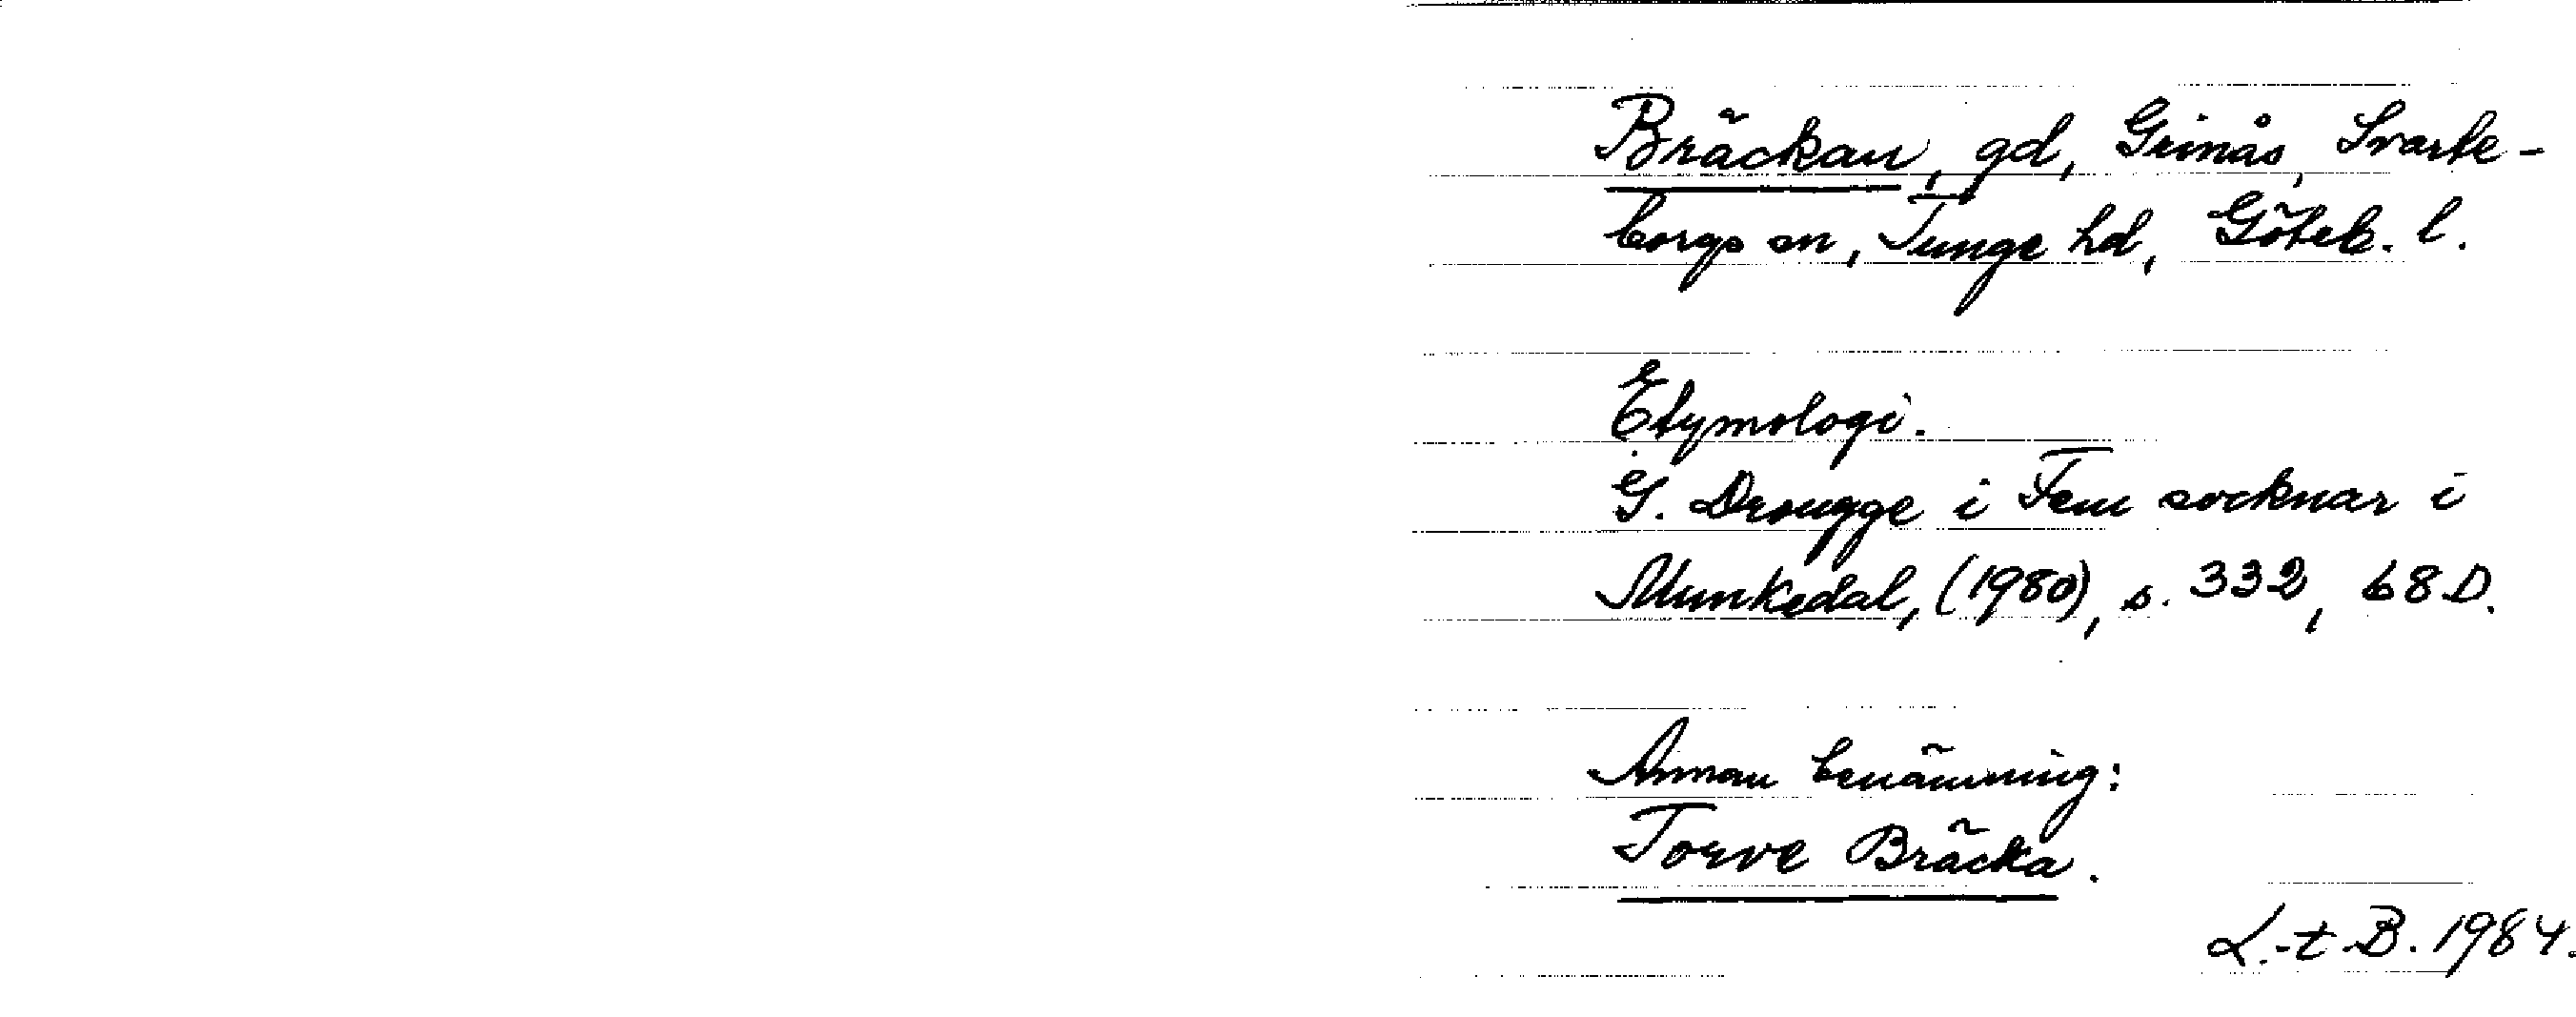 Bräckan, gd, Grinås, Svarte-
borgs sn, Tunge hd, Göteb. l.
Etymologi.
G. Drougge i Fem socknar i
Munkedal, (1980), s. 332, 68 D.
Annan benämning:
Torve Bräcka.
L.-t B. 1984.